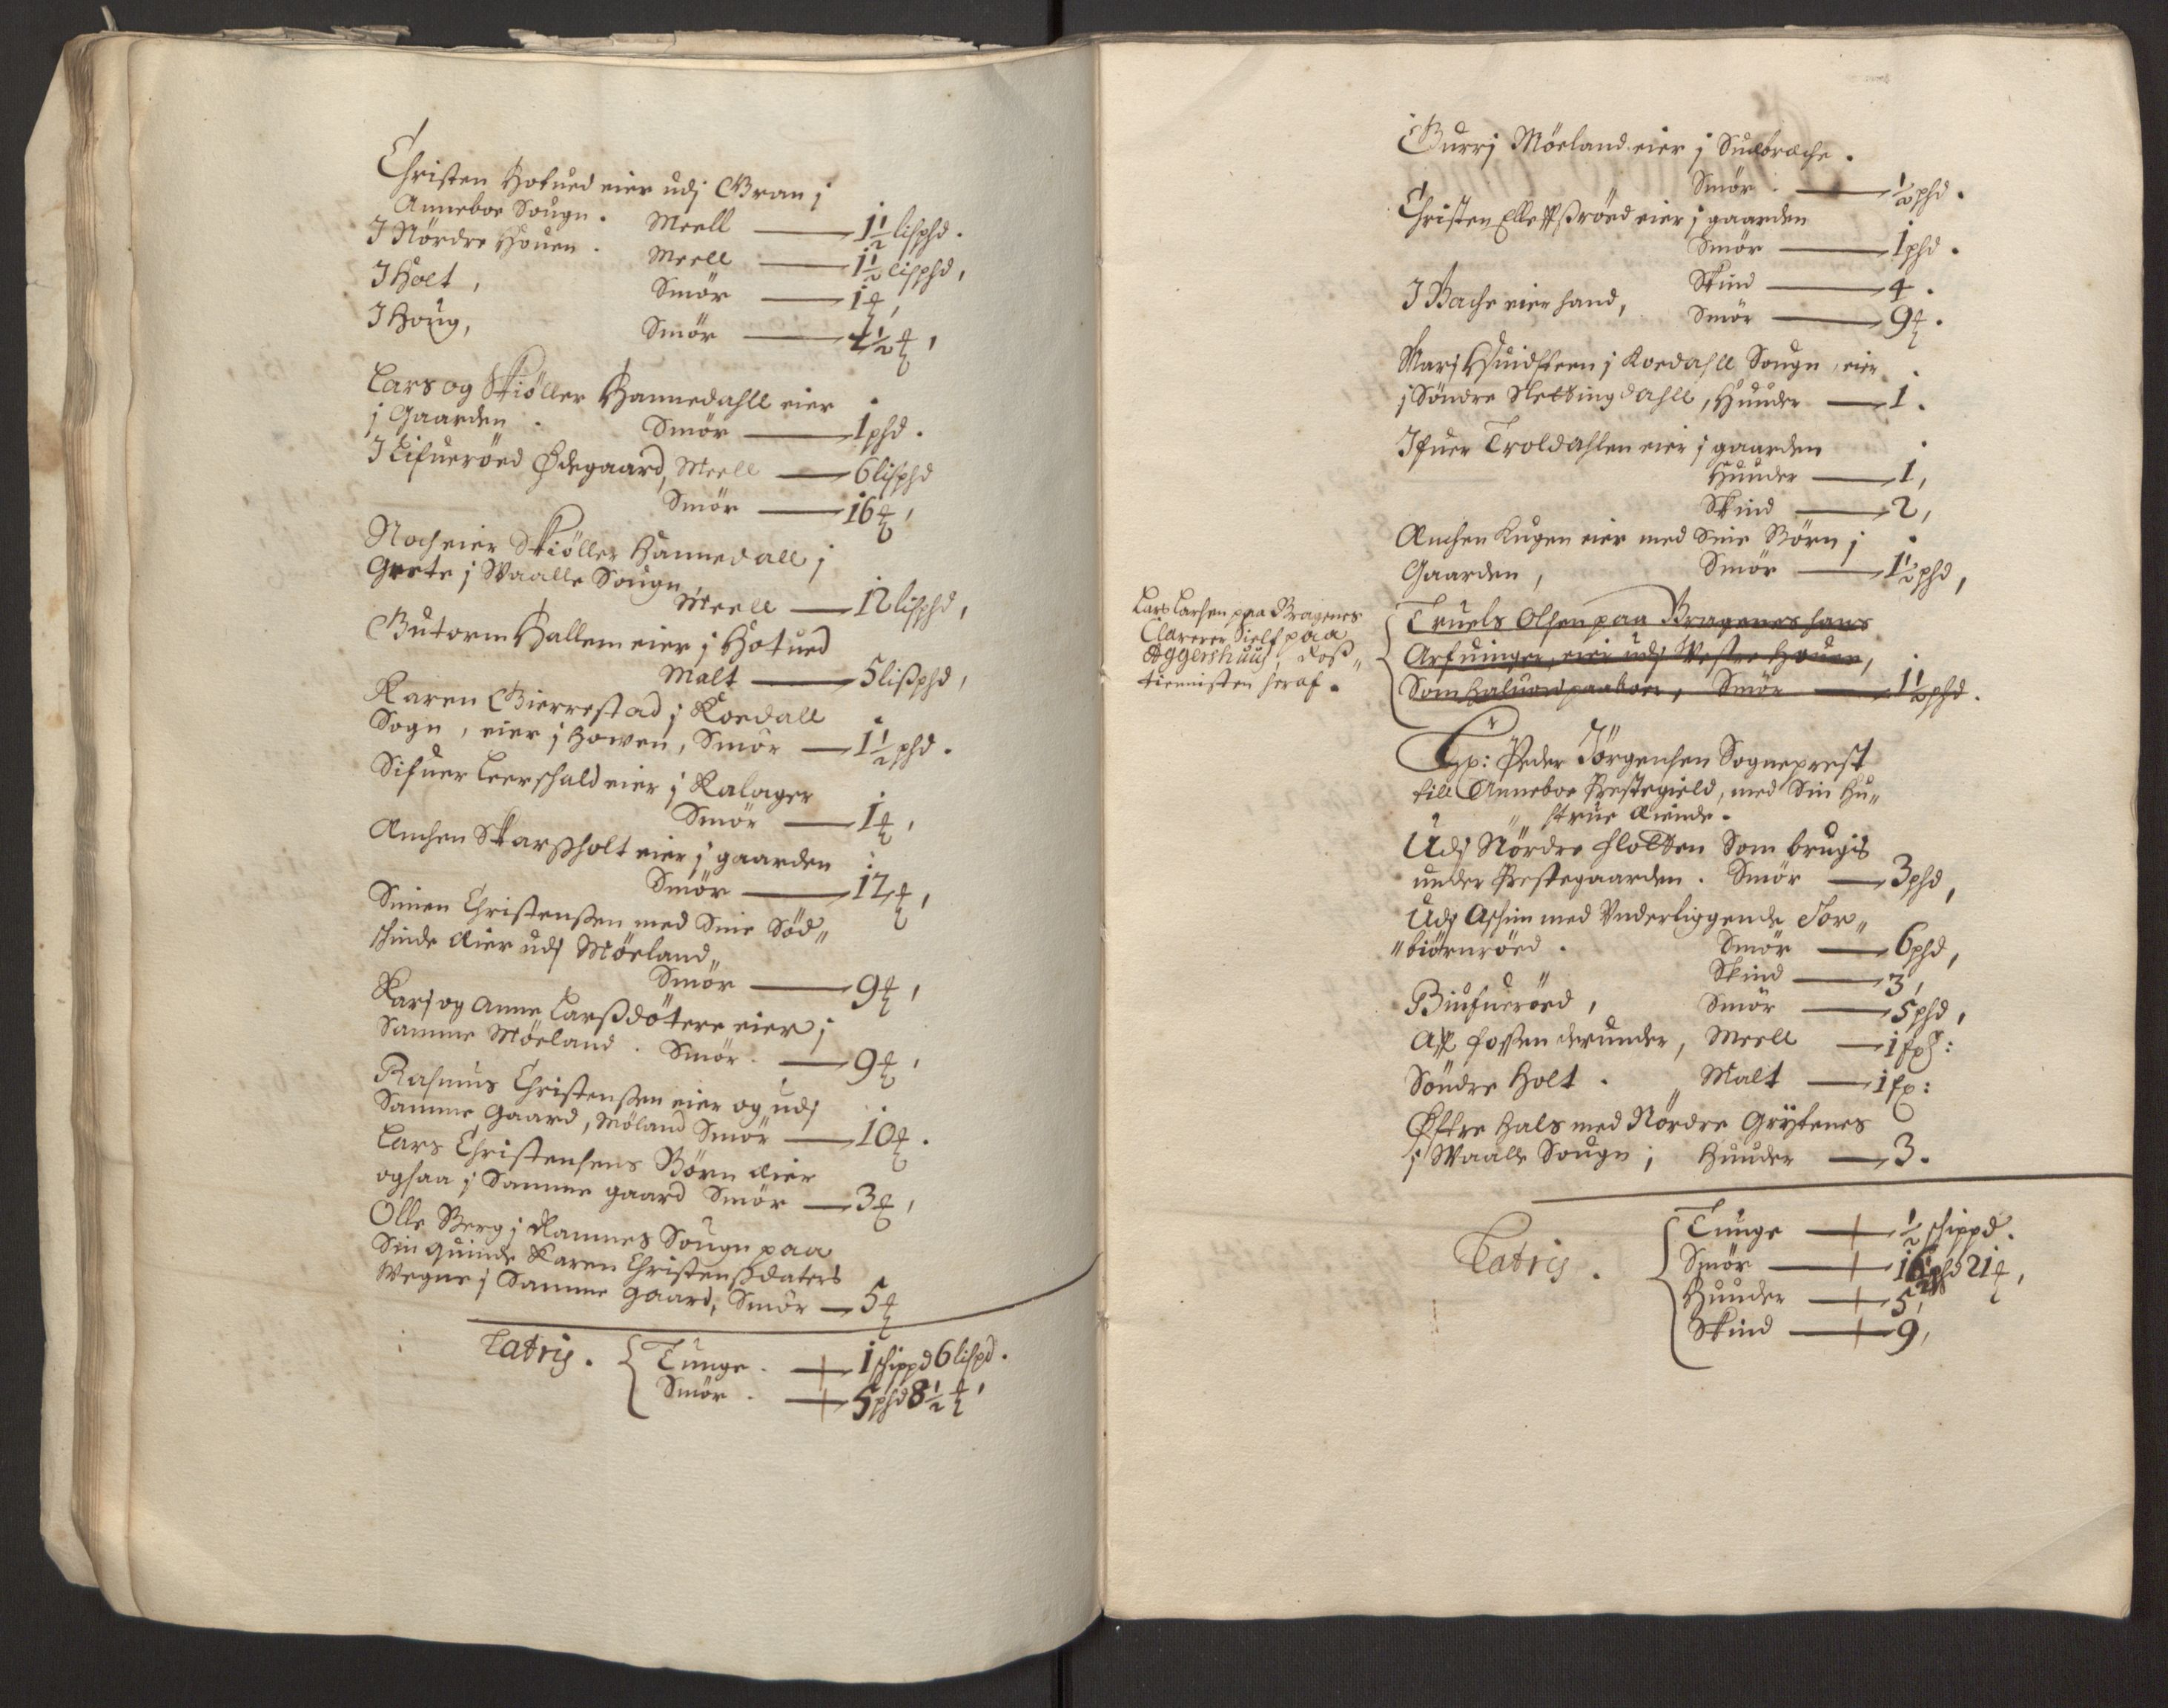 Christen Hotued eier udj Gran j
Anneboe Sougn. Meell — 1½ lisphd.
J Nördre Houen. Meell — 1½ lisphd,
J Holt, Smör — 1 ℔,
J Houg, Smör — 4½ ℔,
Lars og Skiöller Hannedahll eier
j Gaarden. Smör — 1 phd.
J Lifueröed Ødegaard, Meell — 6 lisphd
Smör — 16 ℔,
Noch eier Skiöller Hannedall j
Grete j Waalle Sougn,
Meell — 12 lisphd,
Gutorm Hallem eier j Hotued
Malt — 5 lißphd,
Karen Gierrestad j Roedall
Sogn, eier j Howen, Smör — 1½ phd.
Sifuer Leerschald eier j Kalager
Smör — 1 ℔,
Amchen Skarßholt eier j gaarden
Smör — 12 ℔,
Simen Christenßen med Sine Söd„
schinde Eier udj Möeland„
Smör — 9 ℔,
Karj og Anne Larßdötere eier j
Samme Möeland. Smör. — 9 ℔,
Rasmus Christenßen eier og udj
Samme Gaard, Möland Smör — 10 ℔.
Lars Christensens Börn Eier
ogsaa j Samme gaard Smör — 3 ℔,
Olle Berg j Ramnes Sougn paa
Sin quinde Karen Christenßdaters
Wegne j Samme gaard, Smör — 5 ℔
Latris. Tunge. — 1 schippd 6 lispd.
Smör. — 5 phd 8½ ℔,
Gurrj Möeland eier j Suebræche.
Smör. — ½ phd.
Christen Elleffßröed eier j gaarden
Smör — 1 phd.
Skind — 4.
J Bache eier hand, Smör — 9 ℔.
Marj Huidsteen j Roedahll Sougn, eier
j Söndre Slettingdahll, Huuder — 1.
Jfuer Troldahlen eier j gaarden
Huuder — 1,
Skind — 2,
Amchen Lugen eier med Sine Börn j
Gaarden, Smör — 1½ phd,
Lars Larsen paa Bragenes
Clarerer Sielf paa
Aggershuus, Roß„
tiennisten heraf.
Truels Olsen paa Bragenes hans
Arfuinger, eier udj Westre Houen,
Som Haluord paaboer, Smör — 1½ phd.
Hr: Peder Jörgensen Sogneprest
till Anneboe Prestegield, med Sin Hu„
„strue Eiende.
Udj Nördre Flotten Som brugis
under Prestegaarden. Smör — 3 phd,
Udj Aschim med Underliggende Tor„
„biörnröed. Smör — 6 phd,
Skind — 3,
Biufueröed, Smör — 5 phd,
Aff Foßen derunder, Meell — 1 spd:
Söndre Holt. Malt — 1 sp:
Östre Hals med Nördre Grytenes
j Waalle Sougn; Huuder — 3.
Latris. Tunge — ½ schippd.
Smör — 16½ phd 21 ℔,
Huuder — 5,
Skind — 9,